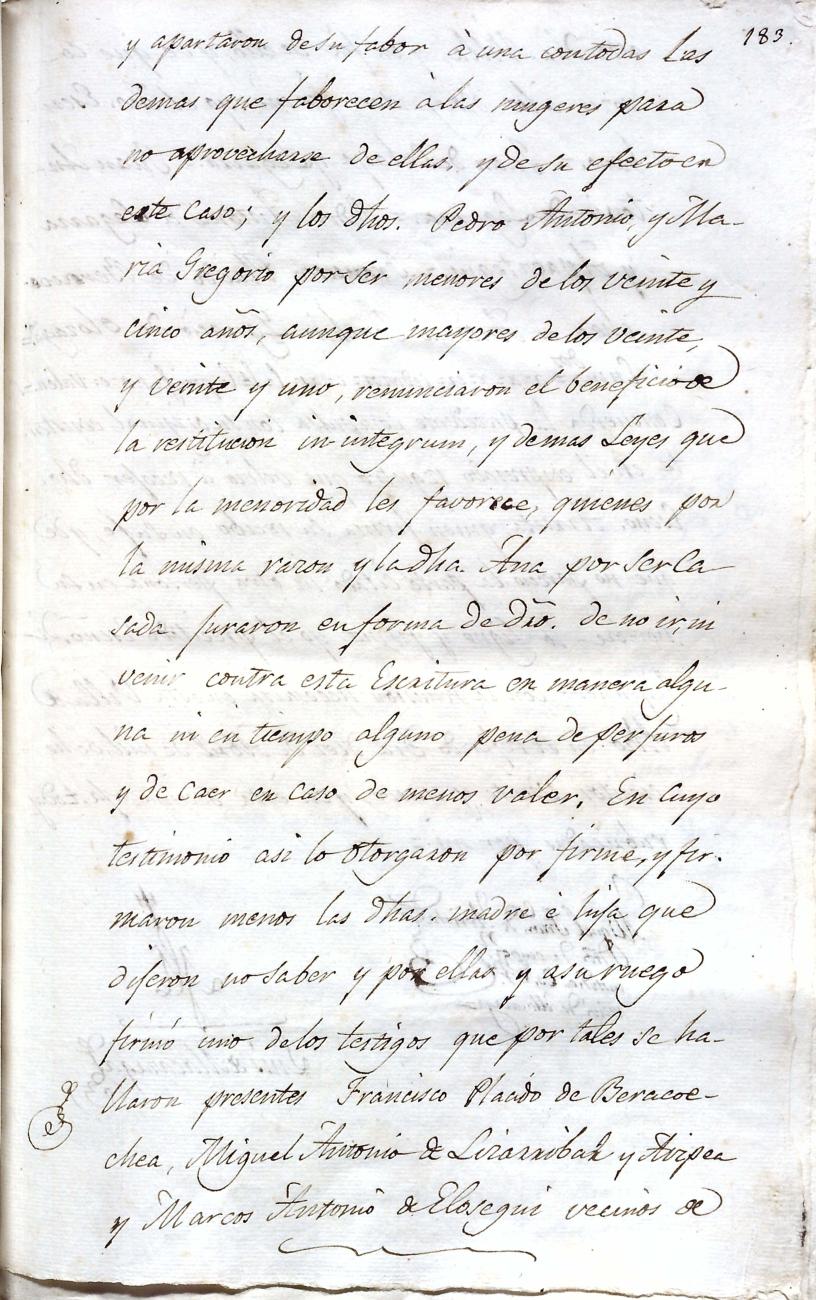 183.
y apartaron de su fabor à una con todas las
demas que faborecen à las mugeres para
no aprovecharse de ellas, y de su efecto en
este caso; y los dhos. Pedro Antonio, y Ma-
ria Gregorio por ser menores de los veinte y
cinco años, aunque mayores de los veinte,
y veinte y uno, renunciaron el beneficio de
la restitucion in-integrum, y demas Leyes que
por la menoridad les favorece, quienes por
la misma razon y la dha. Ana por ser Ca-
sada juraron en forma de dro. de no ir, ni
venir contra esta Escritura en manera algu-
na ni en tiempo alguno pena de perjuros
y de caer en caso de menos valer. En cuyo
testimonio asi lo otorgaron por firme, y fir-
maron menos las dhas. madre è hija que
dijeron no saber y por ellas y a su ruego
firmó uno de los testigos que por tales se ha-
llaron presentes Francisco Placido de Beracoe-
chea, Miguel Antonio de Lizarribah y
y Marcos Antonio de Elosegui vecinos de